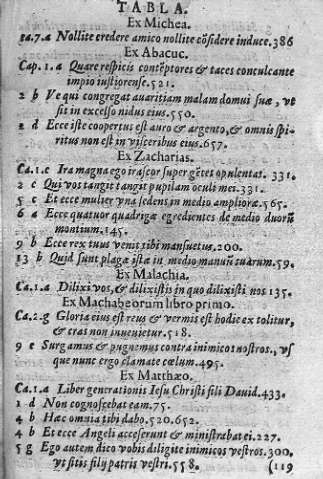 TABLA.
Ex Michea.
ca.7.a Nollite credere amico nollite cõsidere induce.386
Ex Abacuc.
Cap.1.a Quare respicis contẽptores & taces conculcante
impio iustiorense.521.
2 b Ve qui congregat avaritiam malam domui suæ, vt
sit in excelso nidus eius.550.
2 d Ecce iste coopertus est auro & argento, & omnis spi-
ritus non est in visceribus eius.657.
Ex Zacharias.
Ca.1.c Ira magna ego irascor super gẽtes opulentas. 331.
2 c Qui vos tangit tangit pupilam oculi mei.331.
5 c Et ecce mulier vna sedens in medio ampliore.565.
6 a Ecce quatuor quadrigæ egredientes de medio duorũ
montium.145.
9 b Ecce rex tuus venit tibi mansuetus.200.
13 b Quid sunt plagæ istæ in medio manuũ tuarum.59.
Ex Malachia.
Ca.1.a Dilixi vos, & dilixistis in quo dilixisti nos 135.
Ex Machabeorum libro primo.
Ca.2.g Gloria eius est reus & vermis est hodie extolitur,
& cras non inuenietur.518.
9 e Surgamus & pugnemus contra inimicos nostros., vs
que nunc ergo clamate cœlum.495.
Ex Matthæo.
Ca.1.a Liber generationis Iesu Christi fili Dauid.433.
1 d Non cognoscebat eam.75.
4 b Hæc omnia tibi dabo.520.652.
4 b Et ecce Angeli accesserunt & ministrabat ei.227.
5 g Ego autem dico vobis diligite inimicos vestros.300.
vt sitis filij patris vestri.558.
(119